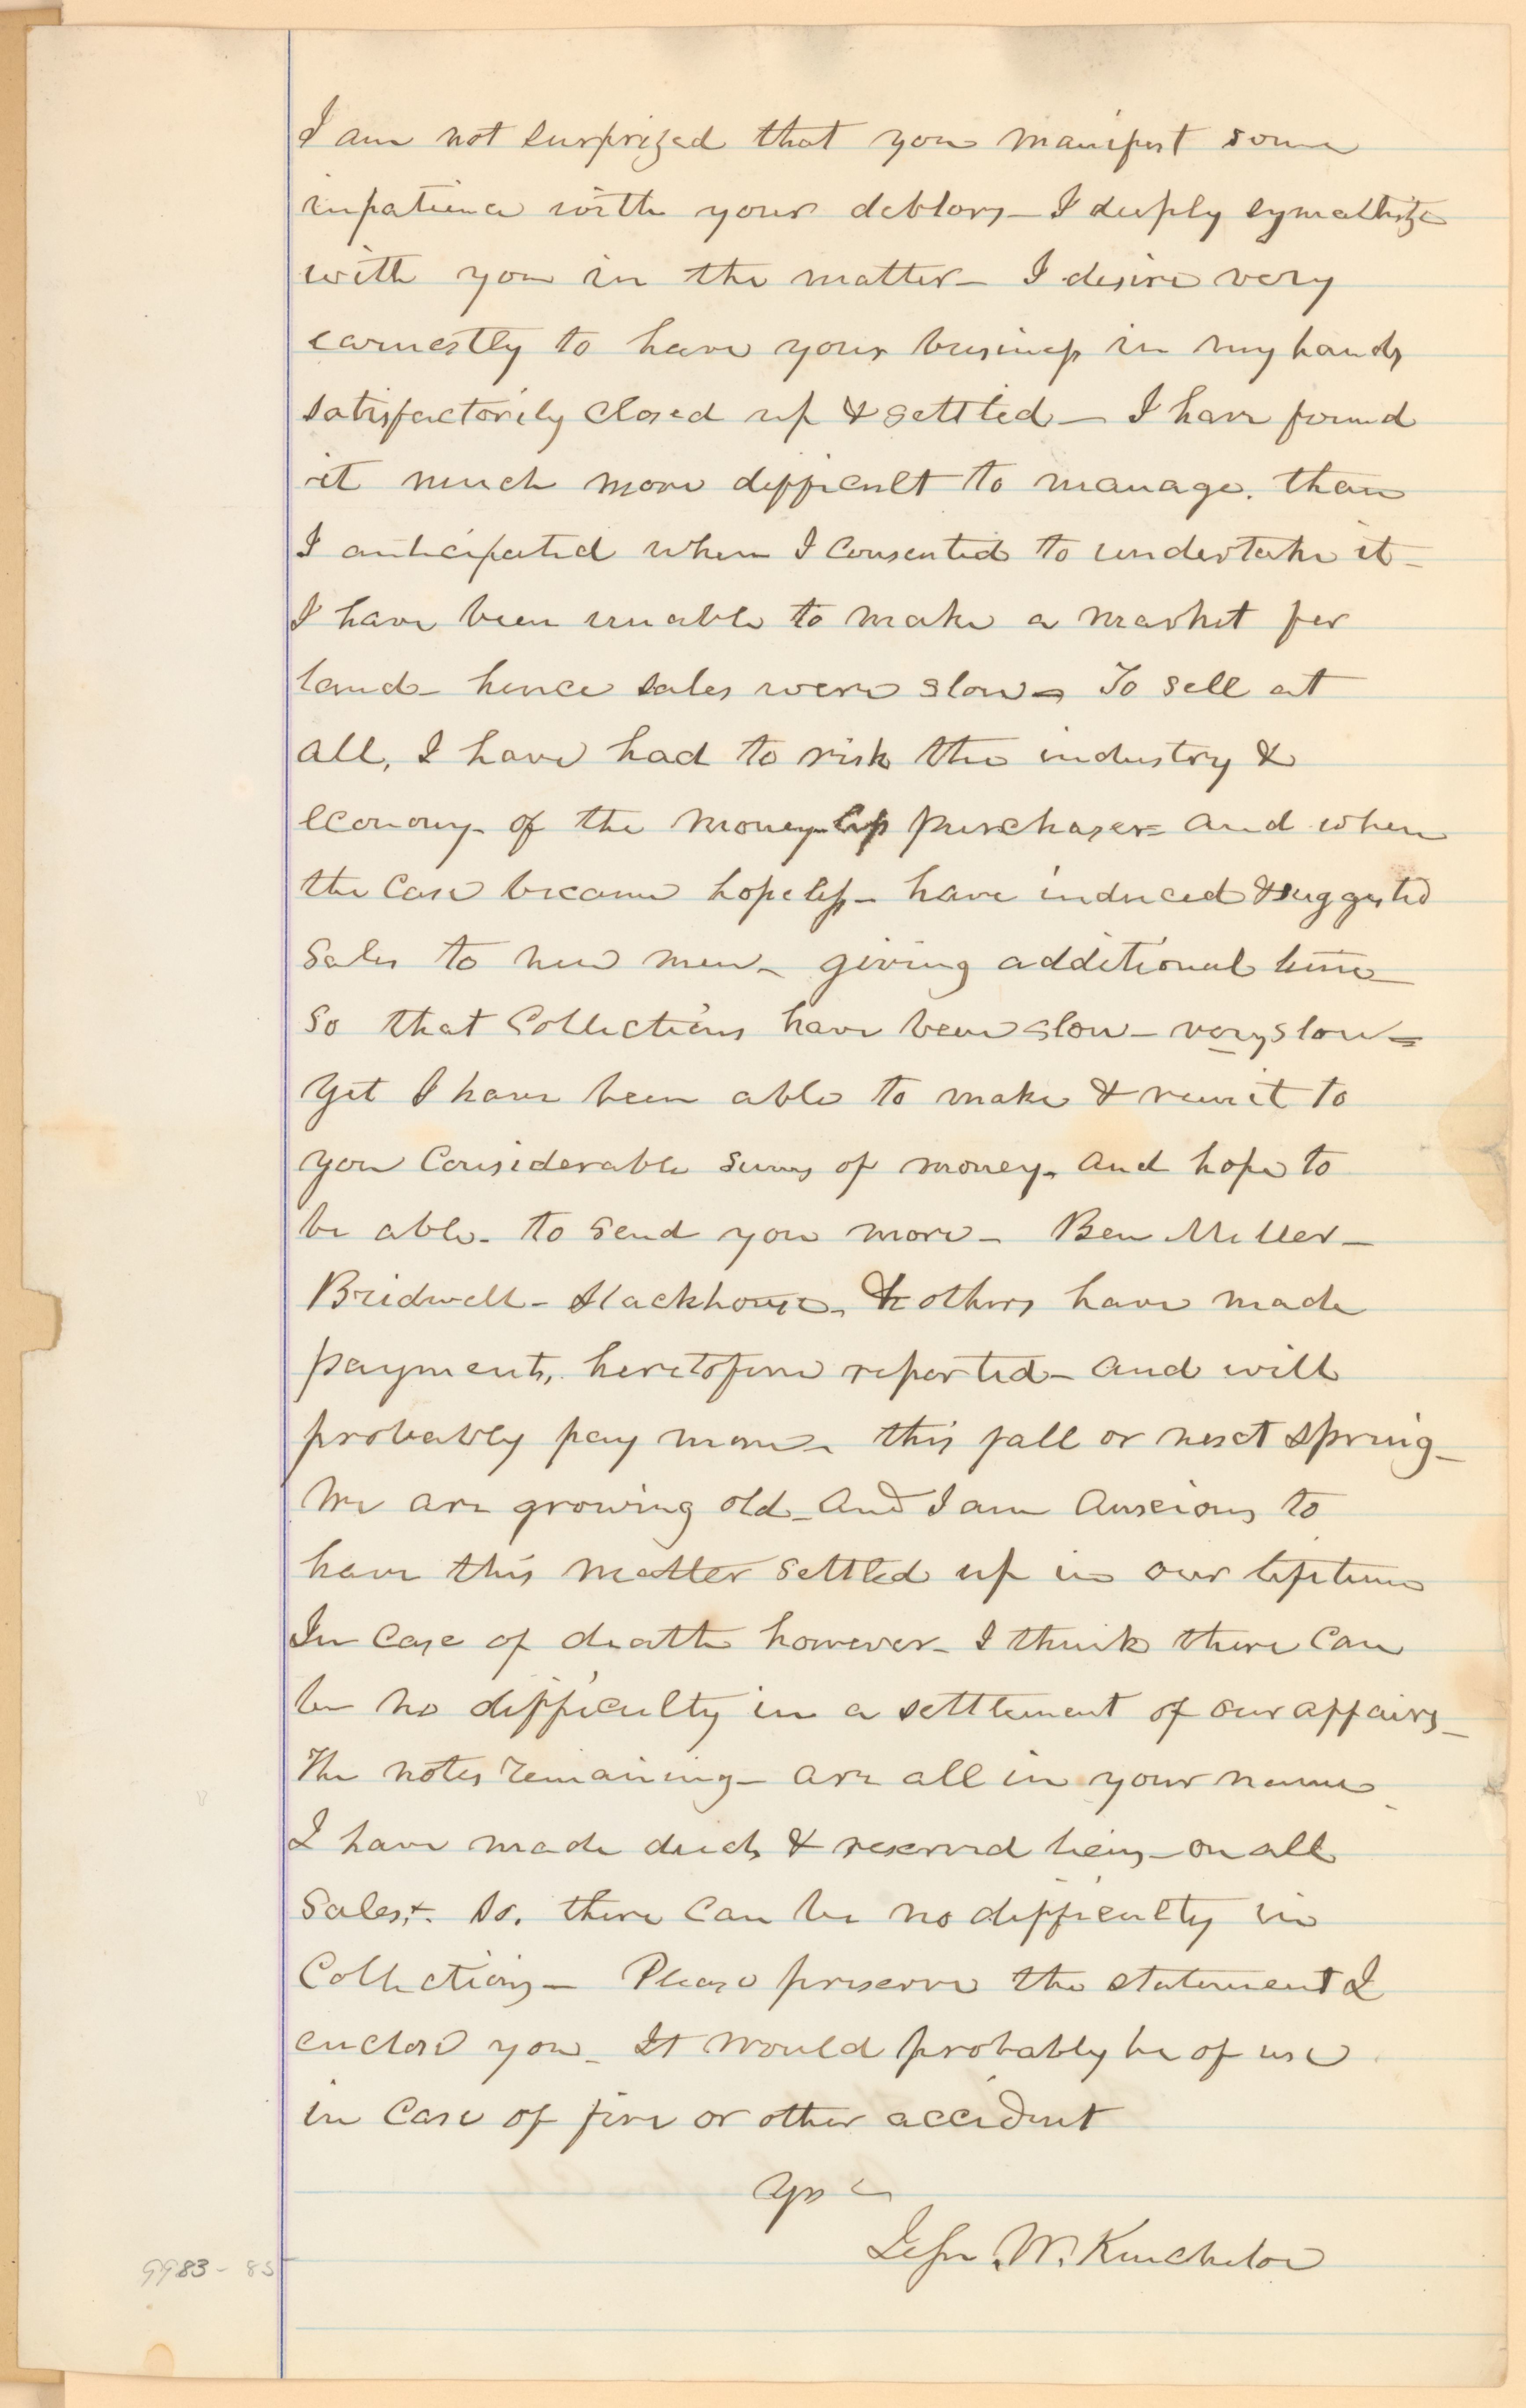 I am not surprized that you manifest some
impatience with your debtors — I deeply symathize
with you in the matter — I desire very
earnestly to have your business in my hands
satisfactorily closed up & settled — I have found
it much more difficult to manage. than
I anticipated when I consented to undertake it —
I have been unable to make a market for
land — hence sales were slow — To sell at
all, I have had to risk the industry &
economy — of the moneyless purchaser = and when
the case became hopeless — have induced & suggested
sales to new men — giving additional time
So that Collections have been slow — very slow =
Yet I have been able to make & remit to
you Considerable sums of money — and hope to
be able — to send you more — Ben Miller —
Bridwell — Stackhouse — & others have made
payments, heretofore reported — and will
probably pay more — this fall or next spring —
We are growing old — and I am anxious to
have this matter settled up in our lifetime
In Case of death however — I think there Can
be no difficulty in a settlement of our affairs —
The notes remaining — are all in your name
I have made deeds & reserved liens — on all
Sales, . So. there Can be no difficulty in
Collections — Please preserve the statement I
enclose you — It would probably be of use
in Case of fire or other accident
Yrs
Jesse W. Kincheloe
9983 - 85